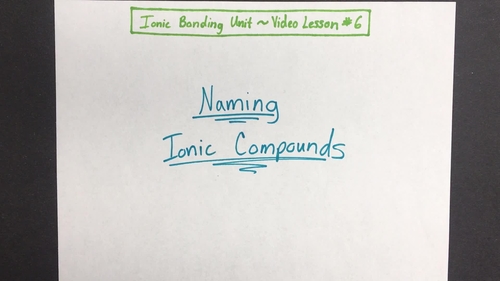 Ionic Bonding Unit ~ Video Lesson #6
Naming
Ionic Compounds